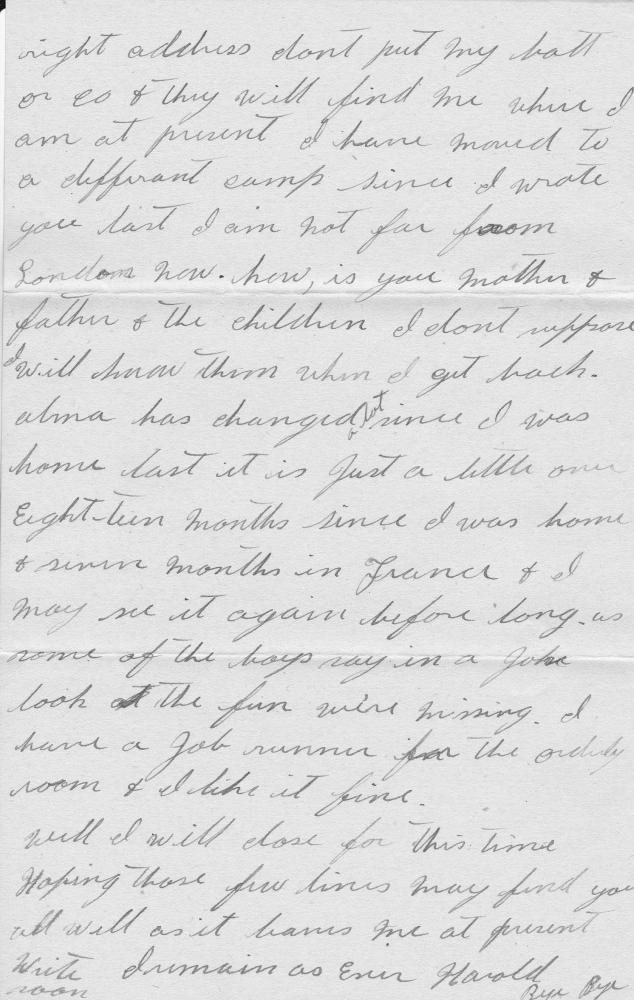 right address dont put my batt
or co & they will find me where I
am at present I have moved to
a differant camp since I wrote
you last I am not far from
London now. how, is you mother &
father & the children I dont suppose
I will know them when I get back.
alma has changed a lot since I was
home last it is just a little over
Eighteen months since I was home
& seven months in France & I
may see it again before long. as
some of the boys say in a joke
look at the fun we're missing. I
have a Job runner for the orderly
room & I like it fine.
well I will close for this time
Hoping those few lines may find you
all well as it leaves me at present
Write I remain as Ever Harold
soon Bye Bye